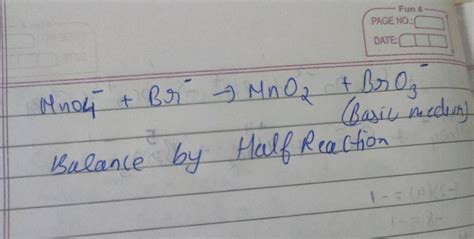 Fun 4
PAGE NO.:
DATE:
MnO4⁻ + Br⁻ → MnO2 + BrO3⁻
(Basic medium)
Balance by Half Reaction